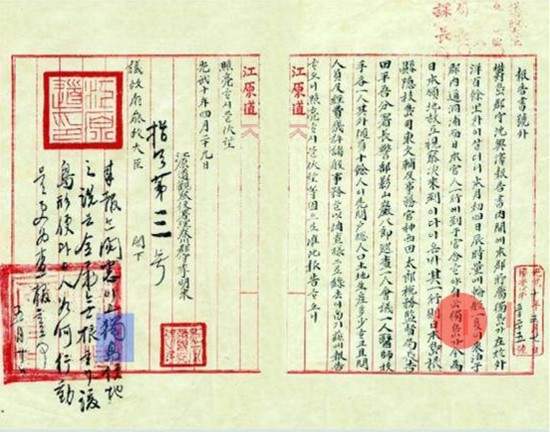 課長
報告書號外
鬱島郡守沈興澤報告書內開에本郡所屬獨島가在於外
洋百餘里外이살더니本月初四日辰時量에輪船一隻이來泊于
郡內道洞浦而日本官人一行이到于官舍ᄒᆞ야自云獨島가今爲
日本領地故로視察次來到이다이온바其一行則日本島根
縣隱岐島司東文輔及事務官神西田太郞稅務監督局長吉
田平吾分署長警部影山巖八郞巡査一人會議一人醫師技
手各一人其外隨員十餘人이先問戶總人口土地生産多少ᄒᆞ고且問
人員及經費幾許諸般事務를以調査樣으로錄去이압기玆以報告
ᄒᆞ오니照亮ᄒᆞ시믈伏望等因으로准此報告ᄒᆞ오니
江原道
江原道
照亮ᄒᆞ시믈伏望
光武十年四月二十九日
江原道觀察使署理春川郡守李明來
議政府參政大臣 閣下
指令第三号
來報と閱悉이고獨島領地
之說은全屬無根ᄒᆞ나該
島形便과日人如何行動
을更爲査報ᄒᆞᆯ事
五月十日